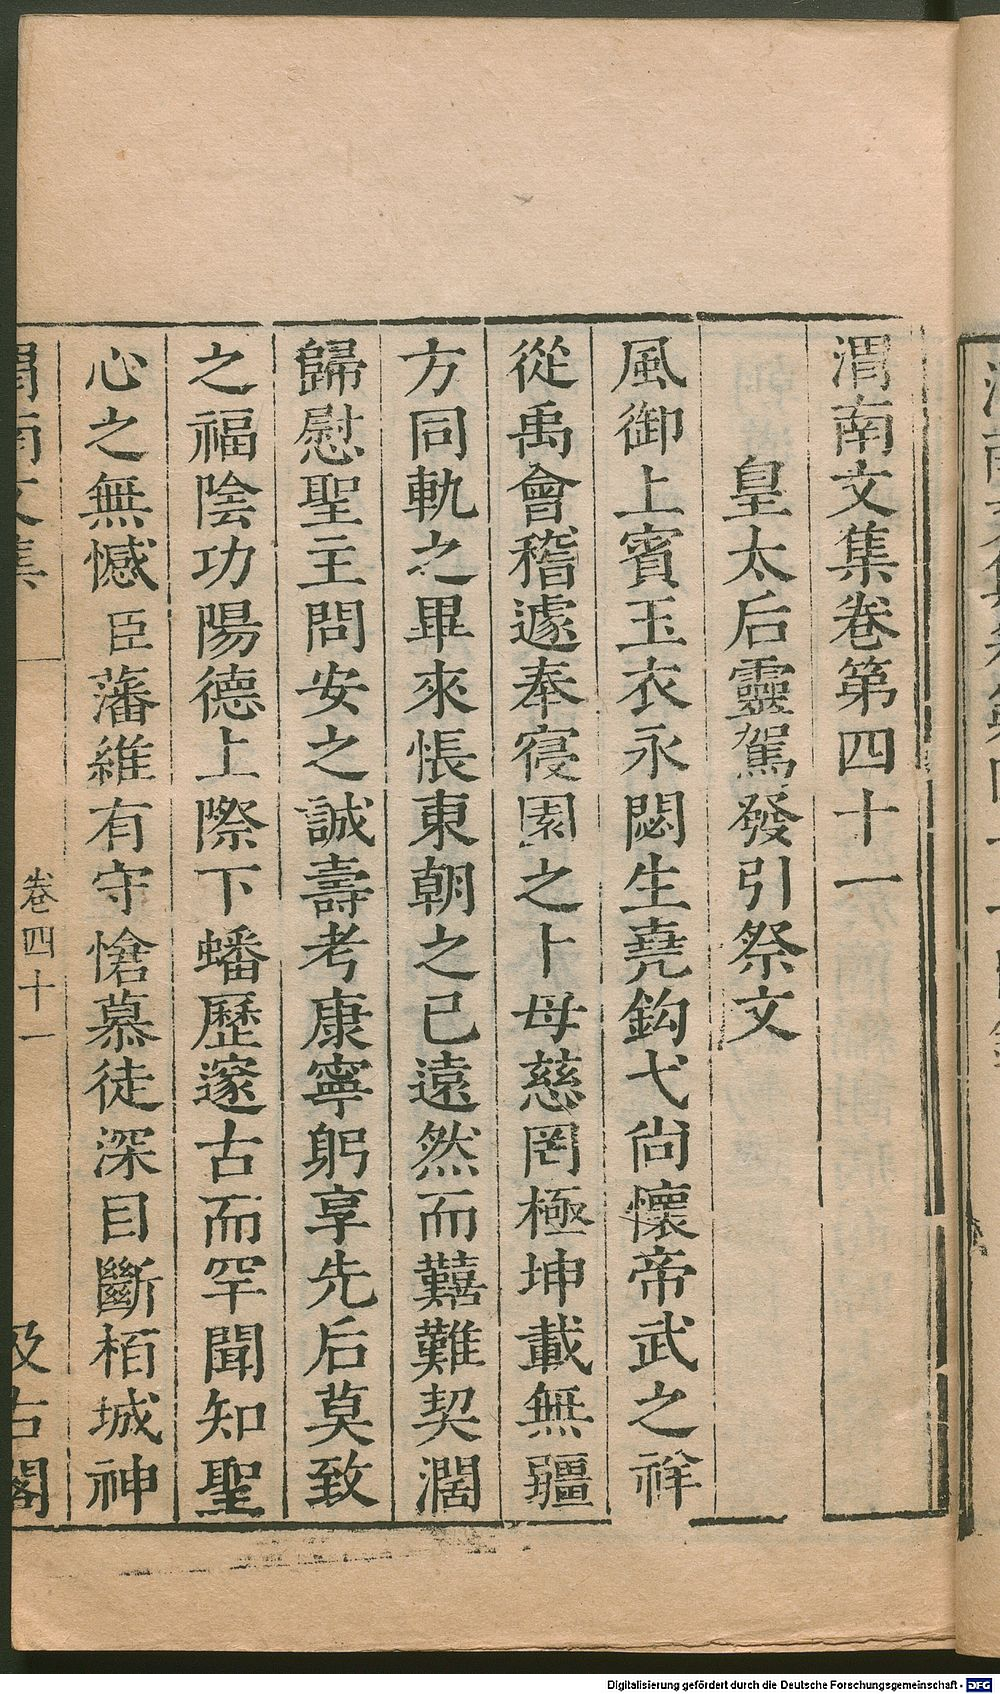 渭南文集卷第四十一
皇太后靈駕發引祭文
風御上賓玉衣永閟生堯鈎弋尚懷帝武之祥
從禹會稽遽奉寑園之卜母慈罔極坤載無疆
方同軌之畢來悵東朝之已遠然而囏難契濶
歸慰聖主問安之誠壽考康寧躬享先后莫致
之福陰功陽德上際下蟠歷邃古而罕聞知聖
心之無憾臣藩維有守愴慕徒深目斷栢城神
渭南文集
卷四十一
汲古閣
Digitalisierung gefördert durch die Deutsche Forschungsgemeinschaft - DFG